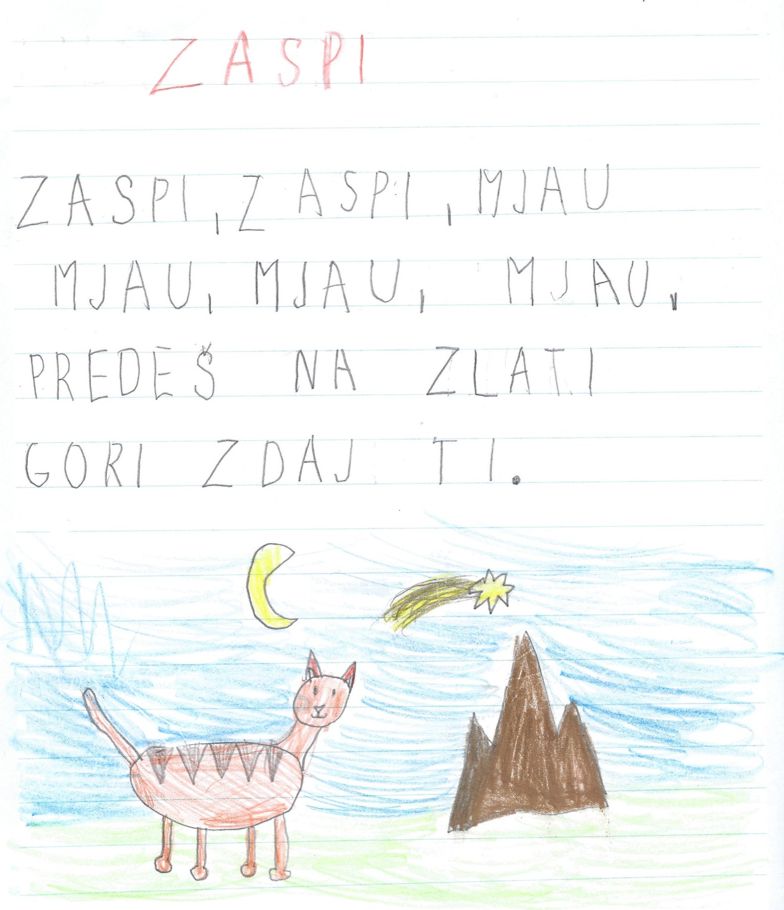 ZASPI
ZASPI, ZASPI, MJAU
MJAU, MJAU, MJAU,
PREDEŠ NA ZLATI
GORI ZDAJ TI.